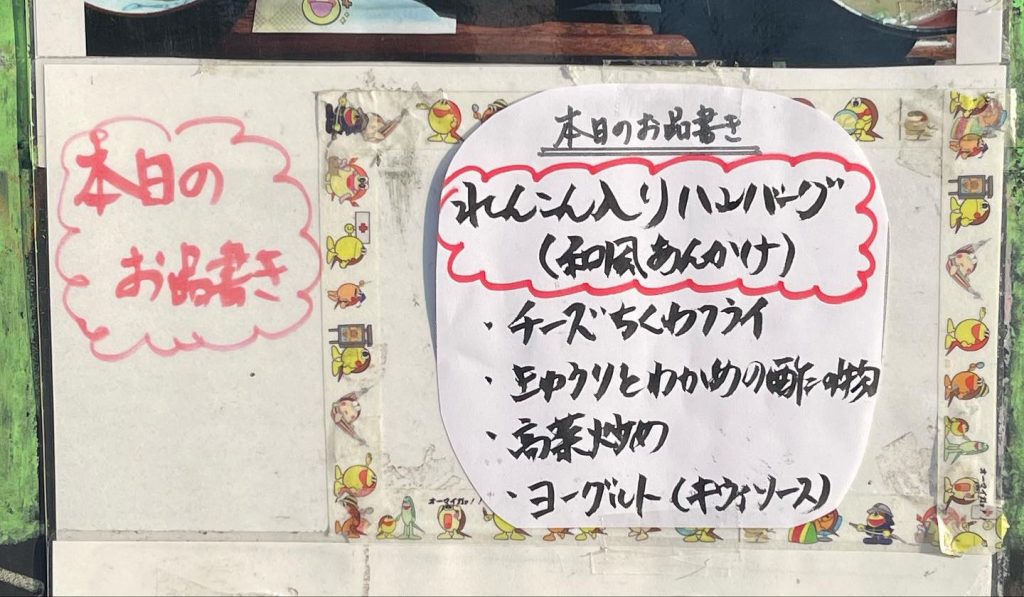 本日の
お品書き
本日のお品書き
れんこん入りハンバーグ
(和風あんかけ)
・チーズちくわフライ
・きゅうりとわかめの酢の物
・高菜炒め
・ヨーグルト(キウィソース)
オーマイガッ!!